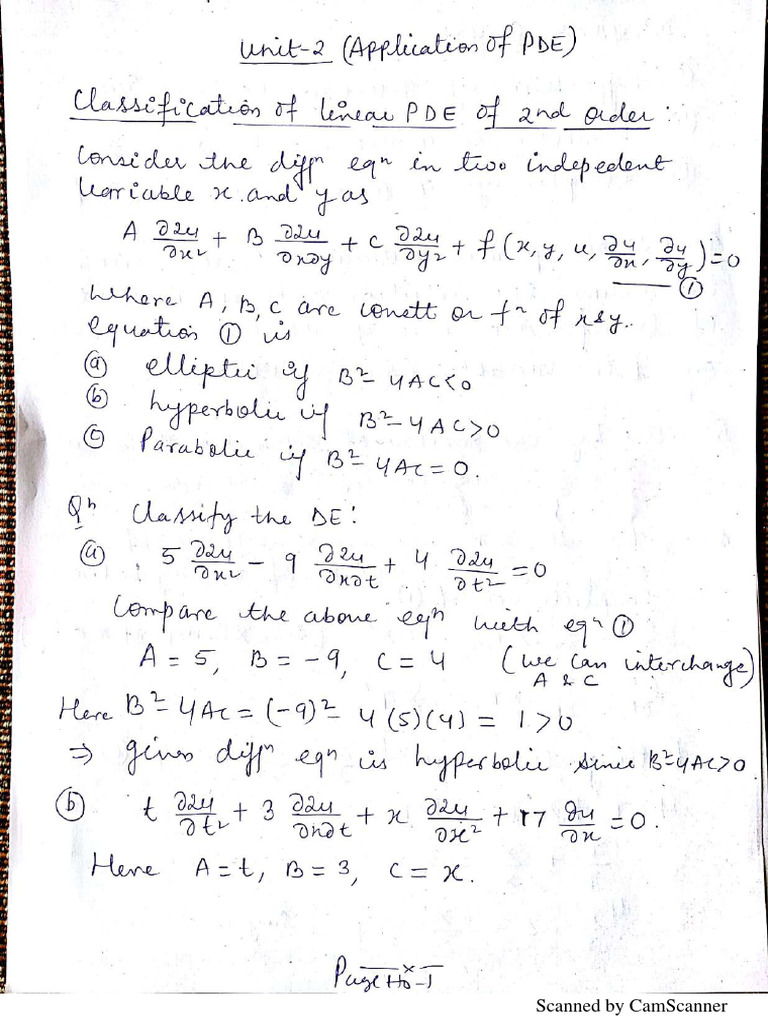 Unit-2 (Application of PDE)
Classification of linear PDE of 2nd order:
Consider the diffⁿ eqⁿ in two indepedent
variable x and y as
A ∂²u/∂x² + B ∂²u/∂x∂y + C ∂²u/∂y² + f(x, y, u, ∂u/∂x, ∂u/∂y) = 0 — ①
Where A, B, C are constt or fⁿ of x & y.
equation ① is
ⓐ elliptic if B² - 4AC < 0
ⓑ hyperbolic if B² - 4AC > 0
ⓒ Parabolic if B² - 4AC = 0.
Qⁿ Classify the DE:
ⓐ 5 ∂²u/∂x² - 9 ∂²u/∂x∂t + 4 ∂²u/∂t² = 0
Compare the above eqⁿ with eqⁿ ①
A = 5, B = -9, C = 4 (we can interchange A & C)
Here B² - 4AC = (-9)² - 4(5)(4) = 1 > 0
⇒ given diffⁿ eqⁿ is hyperbolic since B² - 4AC > 0
ⓑ t ∂²u/∂t² + 3 ∂²u/∂x∂t + x ∂²u/∂x² + 17 ∂u/∂x = 0.
Here A = t, B = 3, C = x.
Page No-1
Scanned by CamScanner